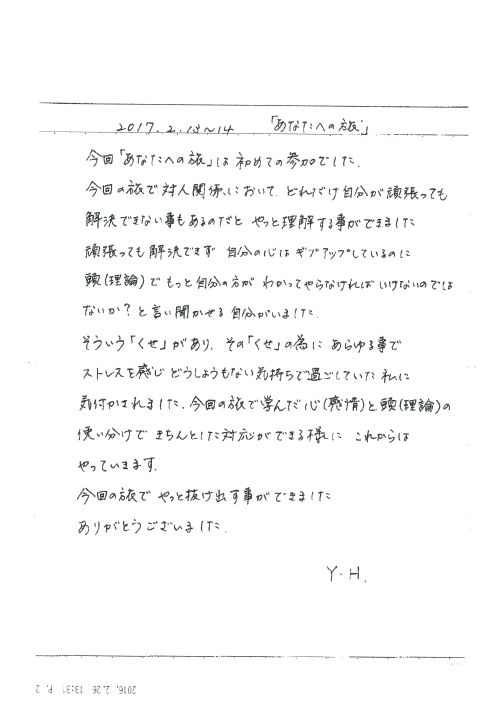 2017.2.13～14 「あなたへの旅」
今回「あなたへの旅」は初めての参加でした.
今回の旅で対人関係において どれだけ自分が頑張っても
解決できない事もあるのだと やっと理解する事ができました
頑張っても解決できず 自分の心はギブアップしているのに
頭(理論)でもっと自分の方が わかってやらなければいけないのでは
ないか？と言い聞かせる自分がいました.
そういう「くせ」があり、その「くせ」の為に あらゆる事で
ストレスを感じ どうしようもない気持ちで過ごしていた私に
気付かされました. 今回の旅で学んだ心(感情)と頭(理論)の
使い分けで きちんとした対応ができる様に これからは
やっていきます.
今回の旅で やっと抜け出す事ができました
ありがとうございました.
Y.H.
2016. 2.26 13:31 P. 2